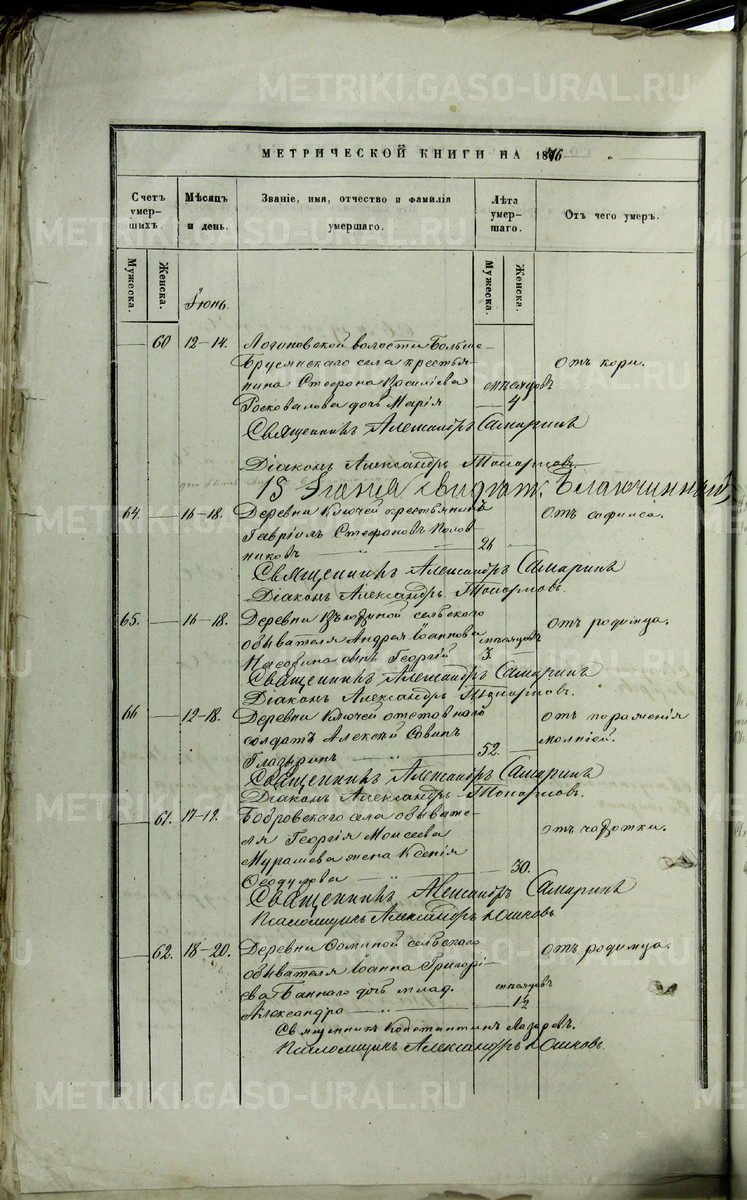 METRIKI.GASO-URAL.RU
МЕТРИЧЕСКОЙ КНИГИ НА 1876
Счетъ умер-шихъ.
Мѣсяцъ и день.
Званіе, имя, отчество и фамилія умершаго.
Лѣта умер-шаго.
Отъ чего умеръ.
Мужеска.
Женска.
Мужеска.
Женска.
Іюнь.
60 12–14. Логиновской волости Больше-
Брусянскаго села крестья- отъ кори.
нина Стефана Василіева мѣсяцовъ
дочь Марія 4
Священникъ Александръ Самаринъ
Діаконъ Александръ Топорковъ.
15 Іюня Благочинный,
64. 16–18. Деревни Ключей крестьянинъ отъ
Гавріилъ Стефановъ Полов-
никовъ 26
Священникъ Александръ Самаринъ
Діаконъ Александръ Топорковъ.
65. 16–18. Деревни сельскаго отъ родимца.
обывателя Андрея Іоаннова мѣсяцовъ
сынъ Георгій 3
Священникъ Александръ Самаринъ
Діаконъ Александръ Топорковъ.
66 12–18. Деревни Ключей отставнаго отъ пораженія
солдатъ Алексѣй Савинъ молніей.
Глазыринъ 52.
Священникъ Александръ Самаринъ
Діаконъ Александръ Топорковъ.
61. 17–19. Бобровскаго села обывате- отъ чахотки.
ля Георгія Моисеева
Мурашева жена Ксенія
Ѳеодулова 30.
Священникъ Александръ Самаринъ
Псаломщикъ Александръ Юшковъ.
62. 18–20. Деревни Ѳоминой сельскаго отъ родимца.
обывателя Іоанна Григорі-
ева Баннаго дочь млад. мѣсяцовъ
Александра 1½
Священникъ Константинъ Лазаревъ.
Псаломщикъ Александръ Юшковъ.